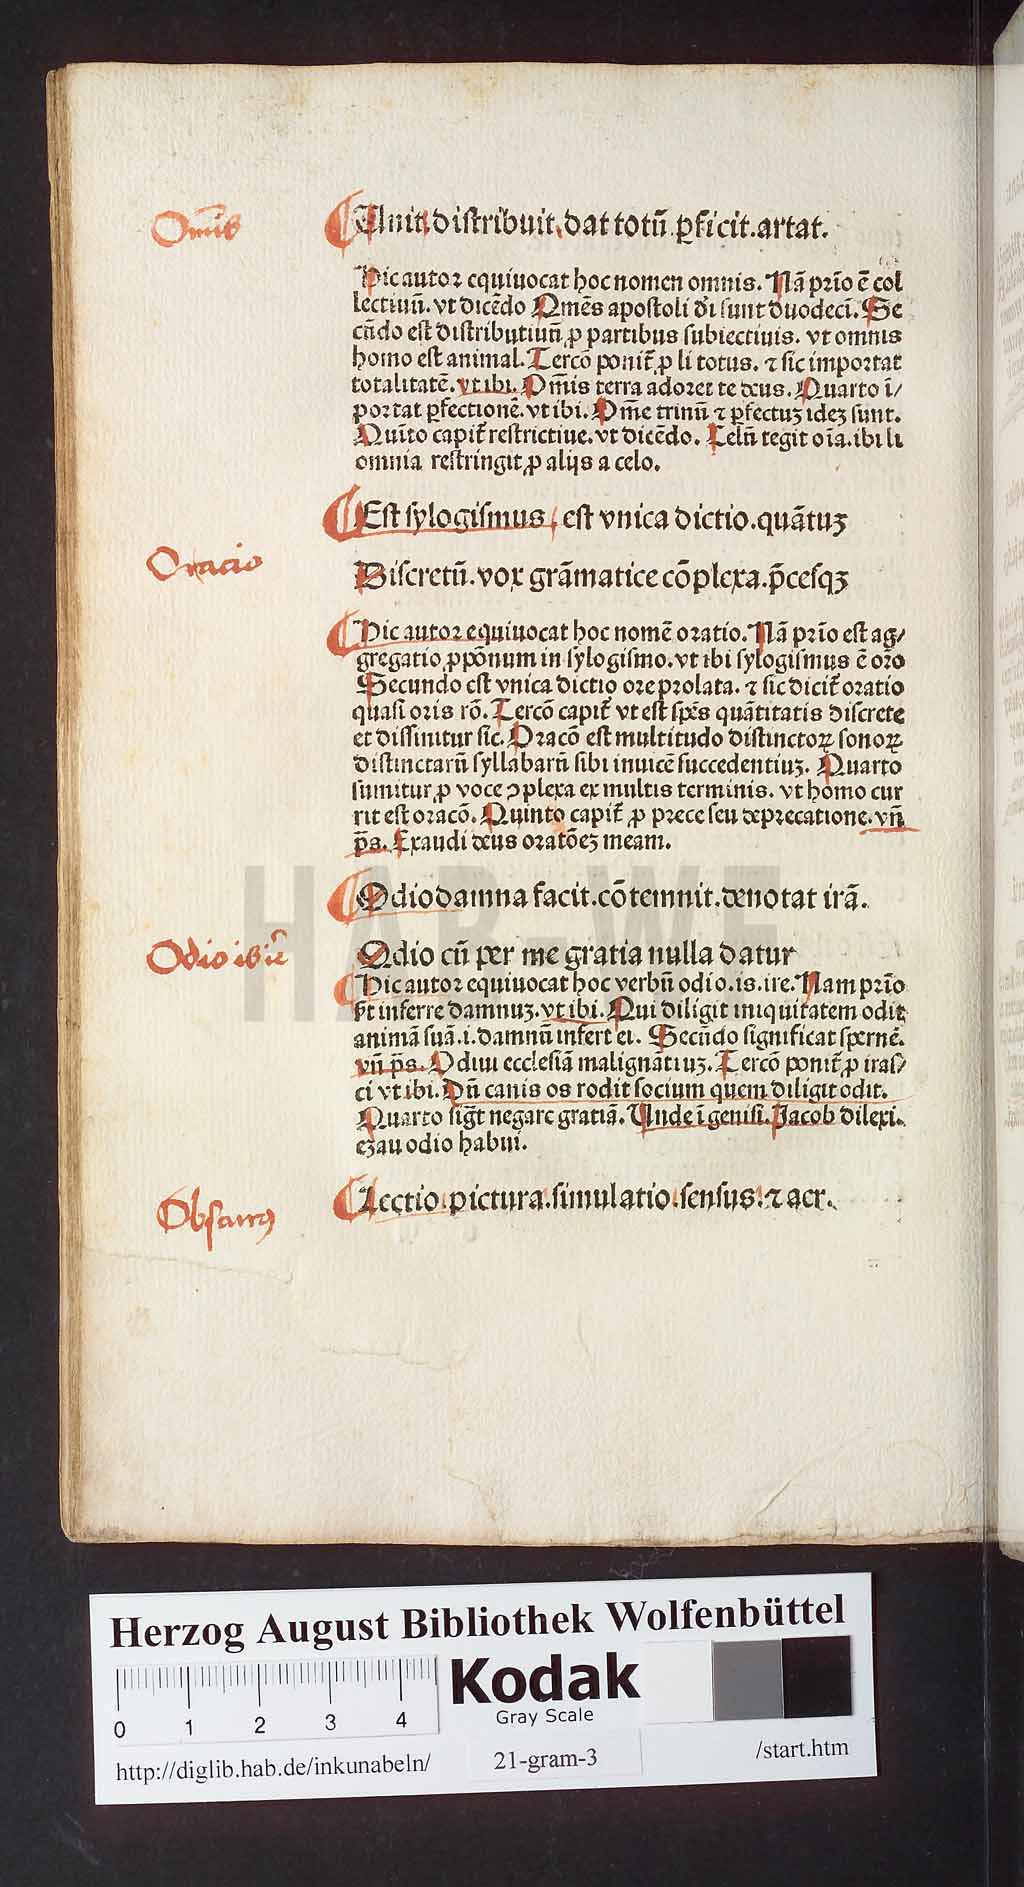 Omīs
Unit.distribuit.dat totū.ꝑficit.artat.
Hic autor equiuocat hoc nomen omnis. Nā prīo ē col
lectiuū. vt dicēdo Omēs apostoli dn̄i sunt duodeci. Se
cūdo est distributiuū ꝓ partibus subiectiuis. vt omnis
homo est animal. Tercō ponit̄ ꝓ li totus. ⁊ sic importat
totalitatē. vt ibi. Om̄is terra adoret te deus. Quarto ī/
portat ꝑfectionē. vt ibi. Ome trinū ⁊ ꝑfectuꝫ ideꝫ sunt.
Quīto capit̄ restrictiue. vt dicēdo. Celū tegit oīa. ibi li
omnia restringit ꝓ alijs a celo.
Est sylogismus est vnica dictio.quātuꝫ
Oracio
Discretū.vox grāmatice cōplexa.p̄cesqꝫ
Hic autor equiuocat hoc nomē oratio. Nā prīo est ag/
gregatio ꝓpōnum in sylogismo. vt ibi sylogismus ē orō
Secundo est vnica dictio ore prolata. ⁊ sic dicit̄ oratio
quasi oris rō. Tercō capit̄ vt est spēs quātitatis discrete
et diffinitur sic. Oracō est multitudo distinctoꝝ sonoꝝ
distinctarū syllabarū sibi inuicē succedentiuꝫ. Quarto
sumitur ꝓ voce ꝯplexa ex multis terminis. vt homo cur
rit est oracō. Quinto capit̄ ꝓ prece seu deprecatione. vn̄
p̄s. Exaudi deus oratōeꝫ meam.
Odio damna facit.cōtemnit.denotat irā.
Odio is ire
Odio cū per me gratia nulla datur
Hic autor equiuocat hoc verbū odio.is.ire. Nam prīo
ē̄t inferre damnuꝫ. vt ibi. Qui diligit iniquitatem odit
animā suā.i. damnū infert ei. Secūdo significat spernē.
vn̄ p̄s. Odiui ecclesiā malignātiuꝫ. Tercō ponit̄ ꝓ iras/
ci vt ibi. Dū canis os rodit socium quem diligit odit.
Quarto siḡt negare gratiā. Unde ī genisi. Jacob dilexi.
eꝫau odio habui.
Lectio.pictura.simulatio.sensus.⁊ aer.
Obscurꝰ
HAB-WF
Herzog August Bibliothek Wolfenbüttel
Kodak
Gray Scale
0 1 2 3 4
http://diglib.hab.de/inkunabeln/
21-gram-3
/start.htm